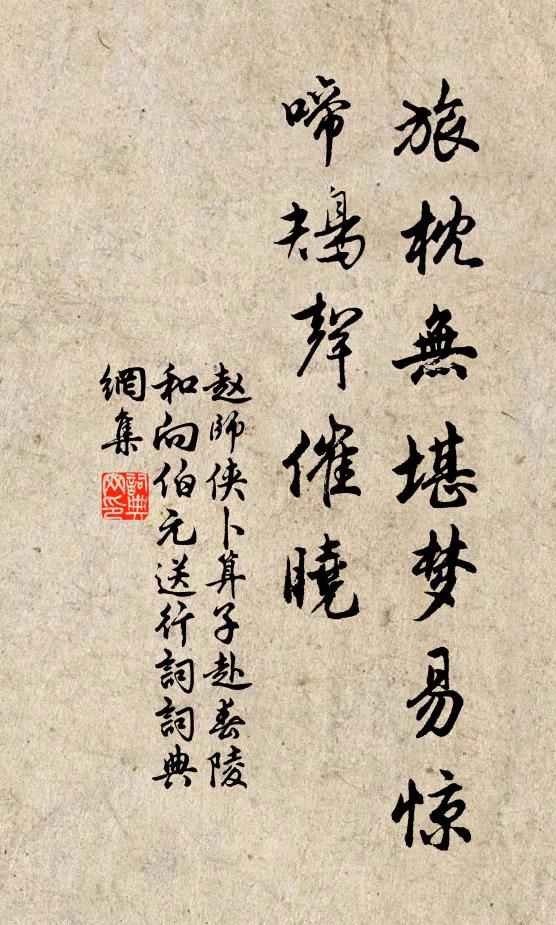 旅枕無堪梦易惊
啼鴂聲催曉
赵師侠卜算子赴舂陵
和向伯元送行詞詞典
網集
詞典
网印